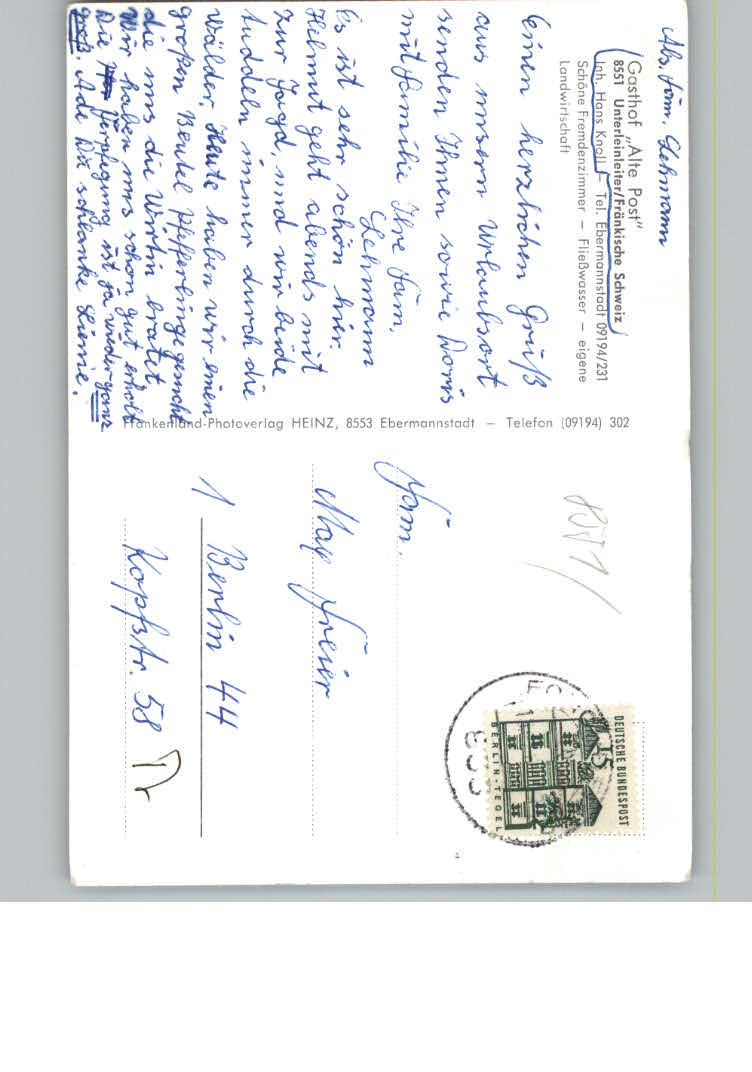 Abs. Fam. Lehmann
Gasthof „Alte Post"
8551 Unterleinleiter/Fränkische Schweiz
Inh. Hans Knoll – Tel. Ebermannstadt 09194/231
Schöne Fremdenzimmer – Fließwasser – eigene
Landwirtschaft
Einen herzlichen Gruß
aus unserm Urlaubsort
senden Ihnen sowie Doris
mit Familie Ihre Fam.
Lehmann
Es ist sehr schön hier.
Helmut geht abends mit
zur Jagd, und wir beide
tuddeln immer durch die
Wälder. Heute haben wir einen
großen Beutel Pfefferlinge gesucht
die uns die Wirtin bratet.
Wir haben uns schon gut erholt
Die Verpflegung ist ja wieder ganz
groß. Ade Du schlanke Linie.
Frankenland-Photoverlag HEINZ, 8553 Ebermannstadt – Telefon (09194) 302
8551
DEUTSCHE BUNDESPOST
15
BERLIN-TEGEL
Fam.
Max Freier
1 Berlin 44
Kopfstr. 58